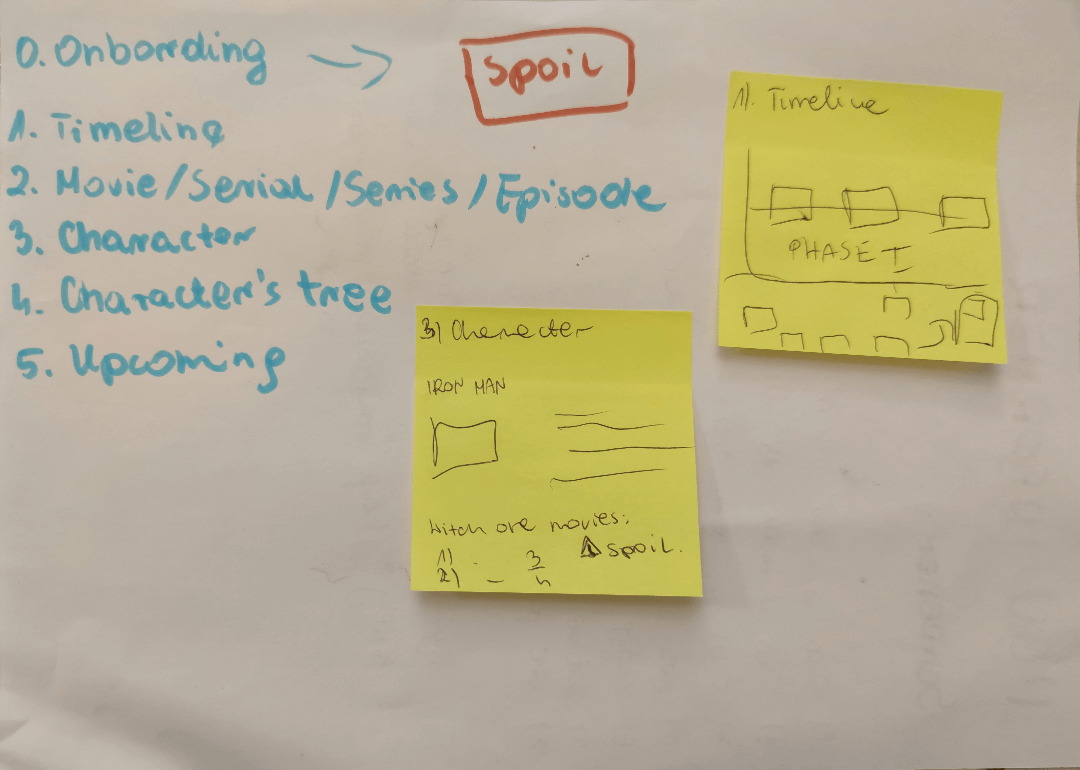 0. Onboarding → Spoil
1. Timeline
2. Movie/Serial/Series/Episode
3. Character
4. Character's tree
5. Upcoming
1). Timeline
PHASE I
3) Character
IRON MAN
Witch are movies:
1) - 3 ⚠ spoil.
2) - 4